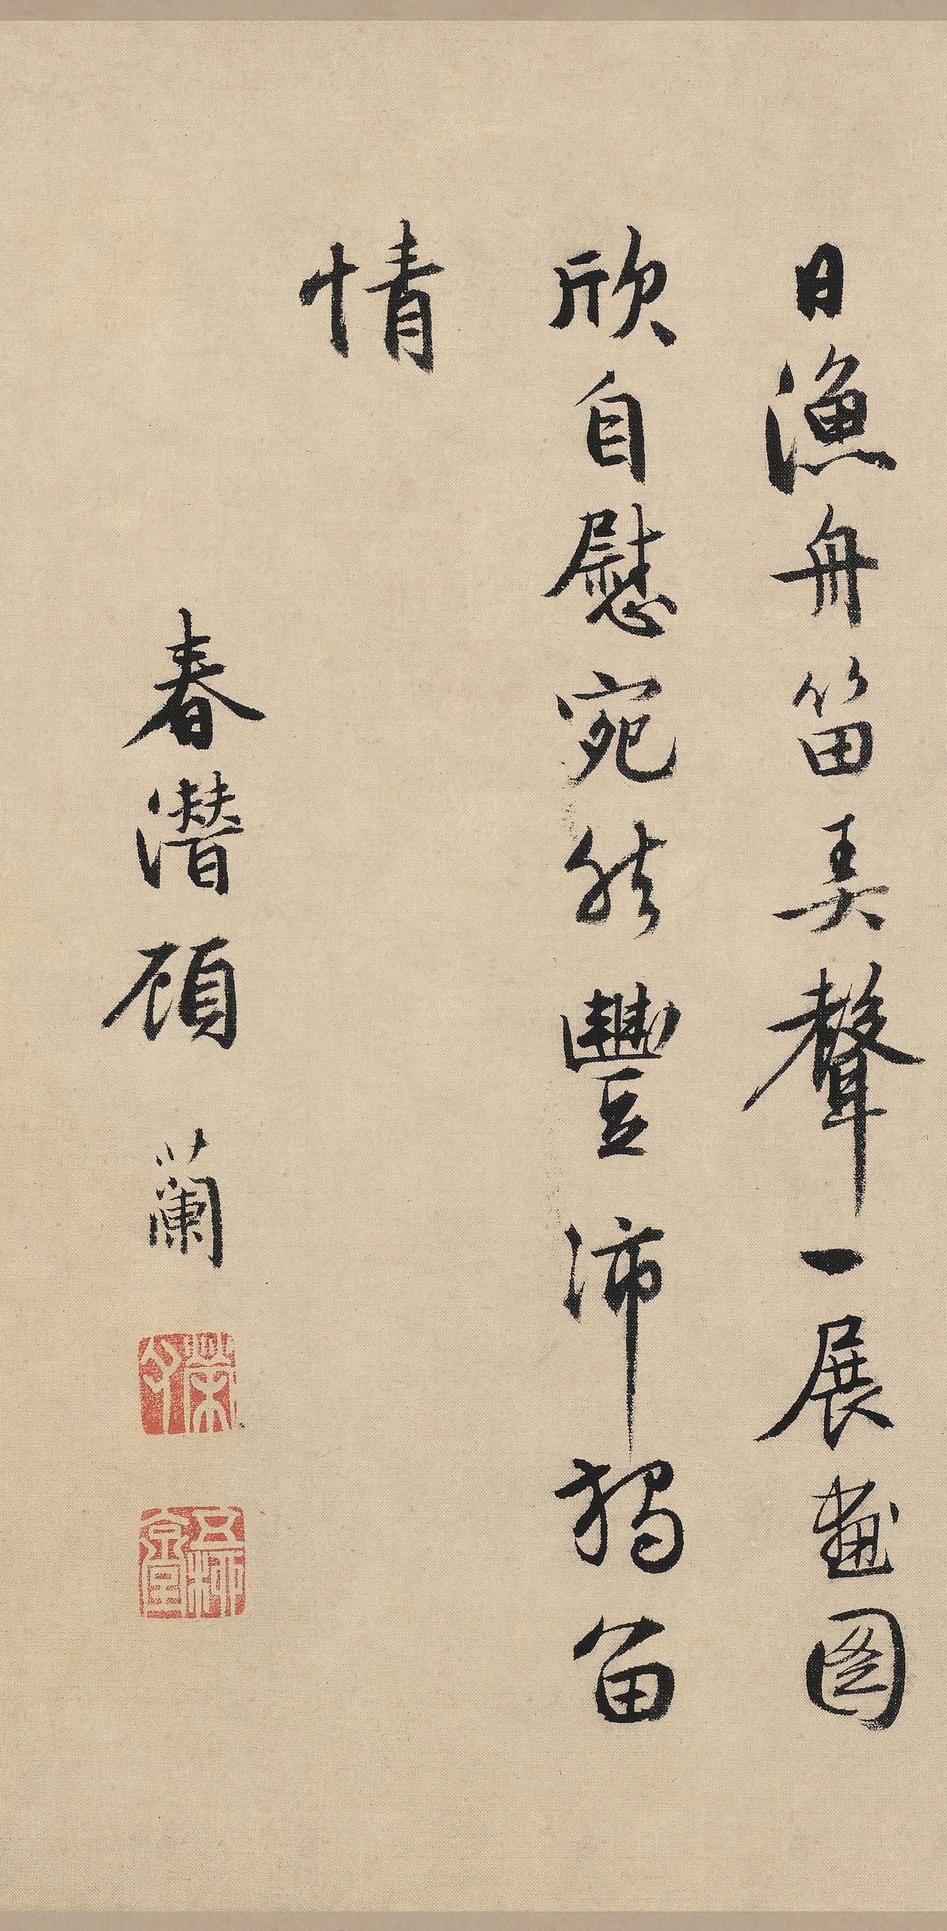 日漁舟笛美聲一展畫圖
欣自慰宛然豐沛獨留
情
春潛顧 蘭
榮甫